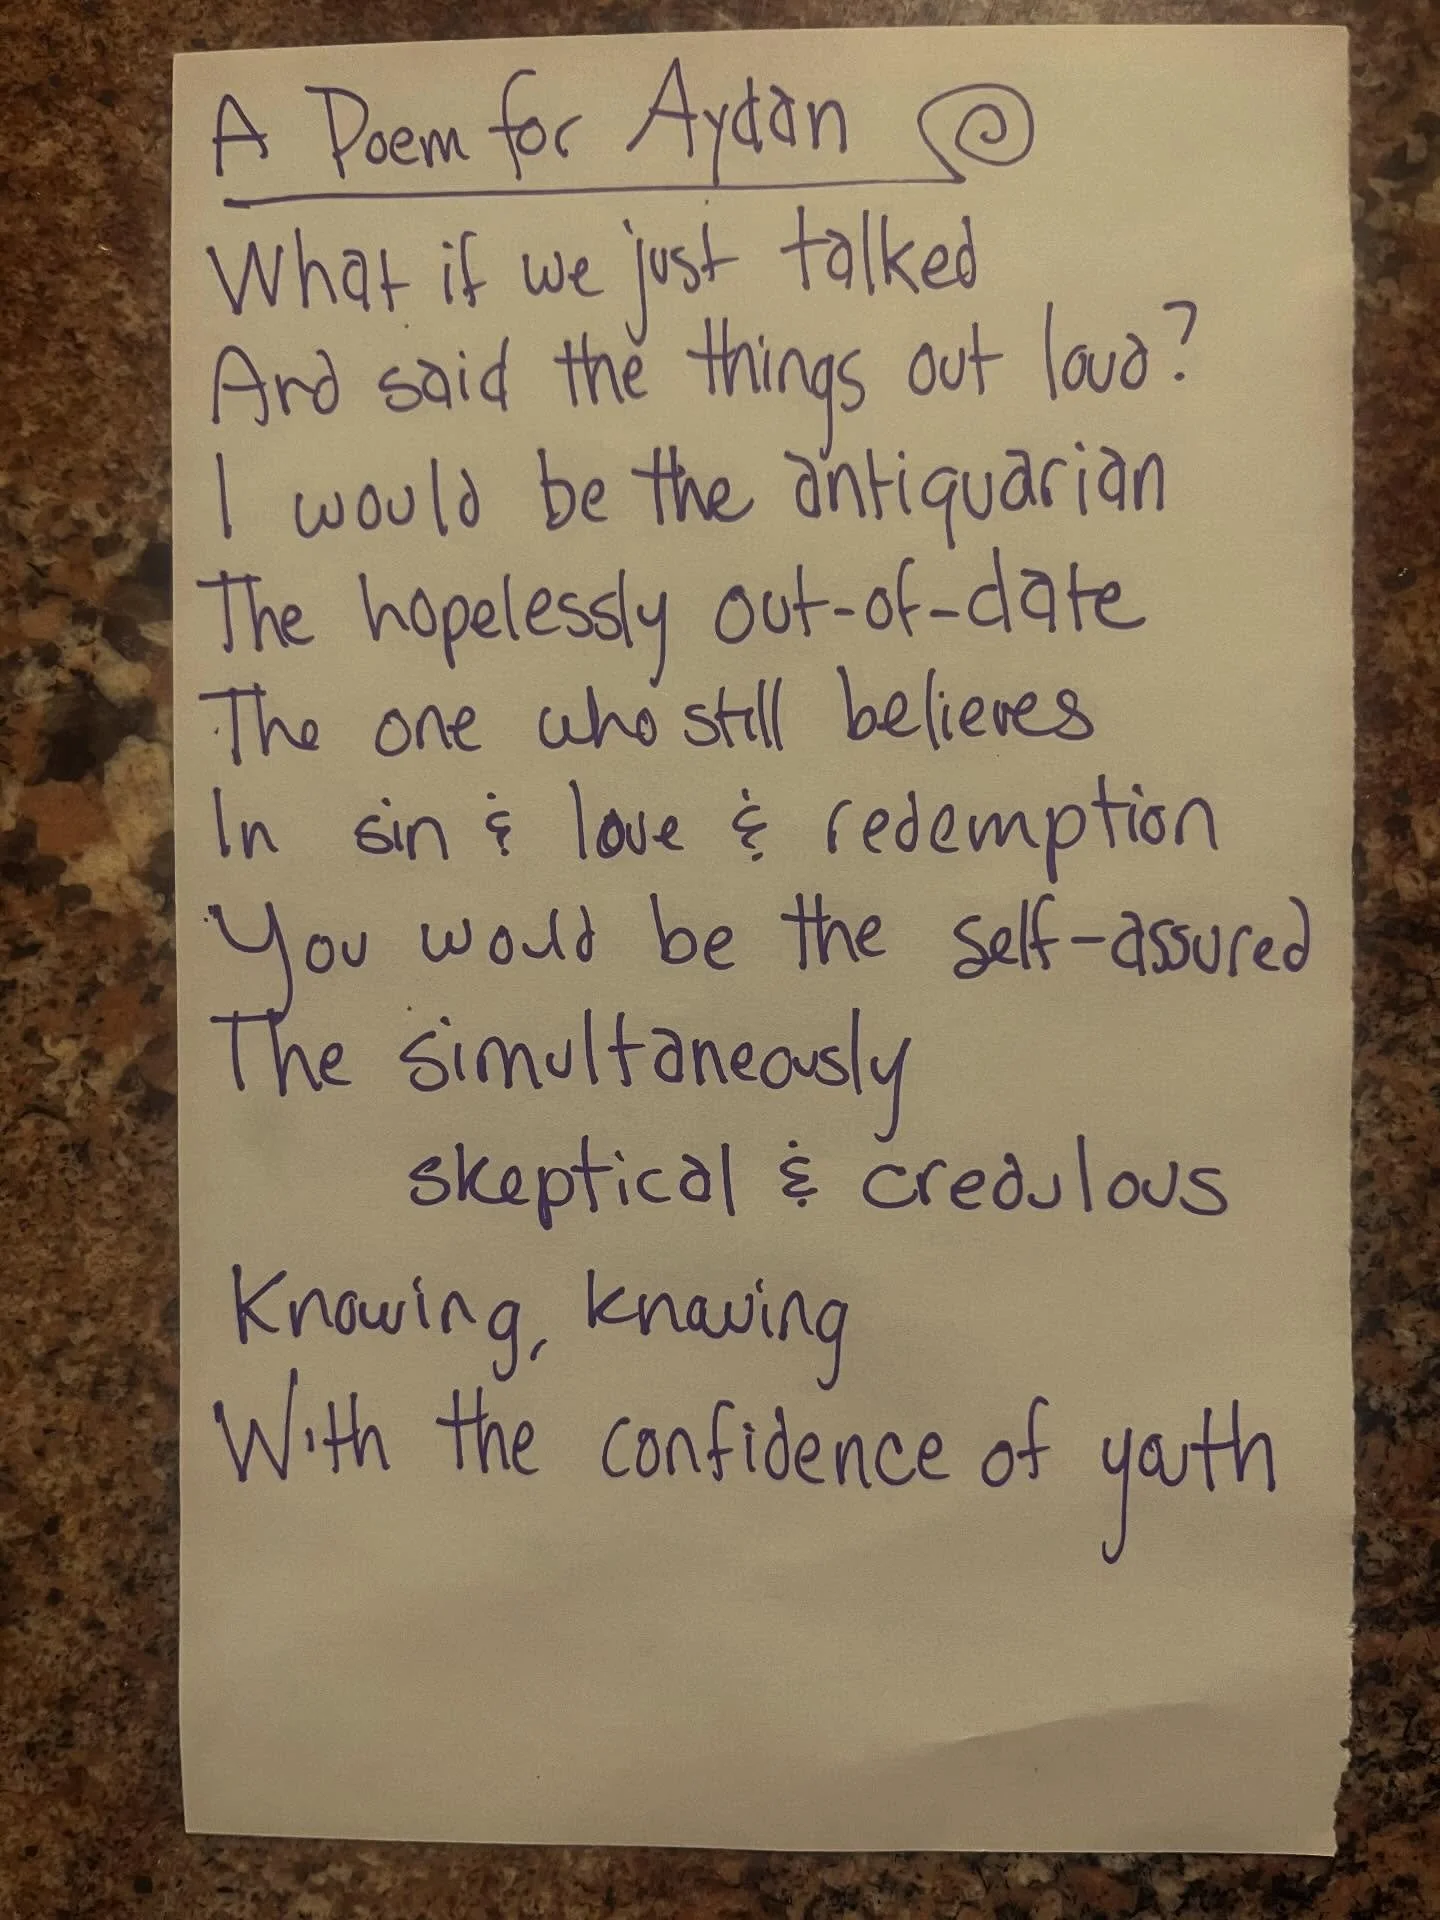 A Poem for Aydan
What if we just talked
And said the things out loud?
I would be the antiquarian
The hopelessly out-of-date
The one who still believes
In sin & love & redemption
You would be the self-assured
The simultaneously
skeptical & credulous
Knowing, knowing
With the confidence of youth